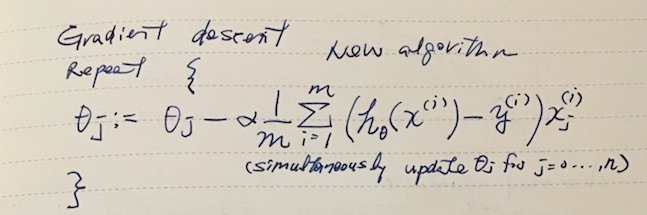 Gradient descent
New algorithm
Repeat {
θj := θj - α 1/m Σ_{i=1}^{m} (hθ(x^(i)) - y^(i)) xj^(i)
(simultaneously update θj for j=0...,n)
}